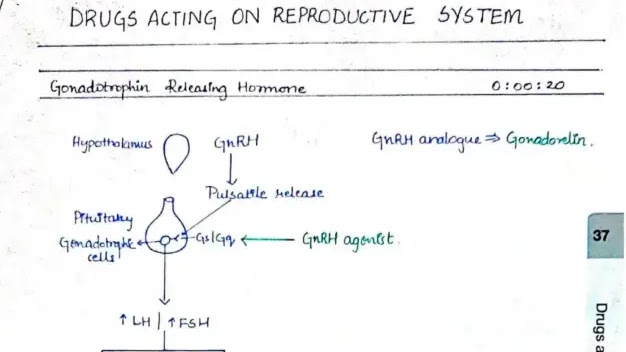 DRUGS ACTING ON REPRODUCTIVE SYSTEM
Gonadotrophin Releasing Hormone 0:00:20
Hypothalamus GnRH
GnRH analogue ⇒ Gonadorelin.
Pulsatile release
Pituitary
Gonadotrophic
cells
Gs/Gq ← GnRH agonist.
↑ LH | ↑ FSH
37
Drugs a